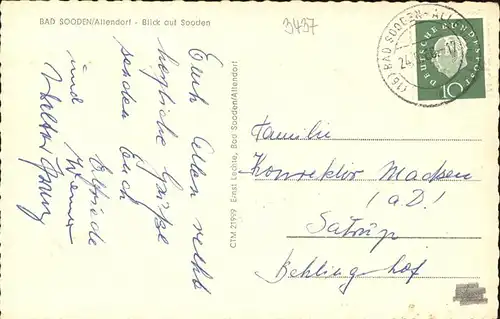 BAD SOODEN/Allendorf - Blick auf Sooden
3437
(16) BAD SOODEN-ALLE
24.
DEUTSCHE BUNDESPOST
10
Euch Allen recht
herzliche Grüße
senden Euch
Elfriede
Werner
und
Walter Franz
CTM 21999 Ernst Lechte, Bad Sooden/Allendorf
Familie
Konrektor Madsen
(a.D!
Satrup
Behlingshof